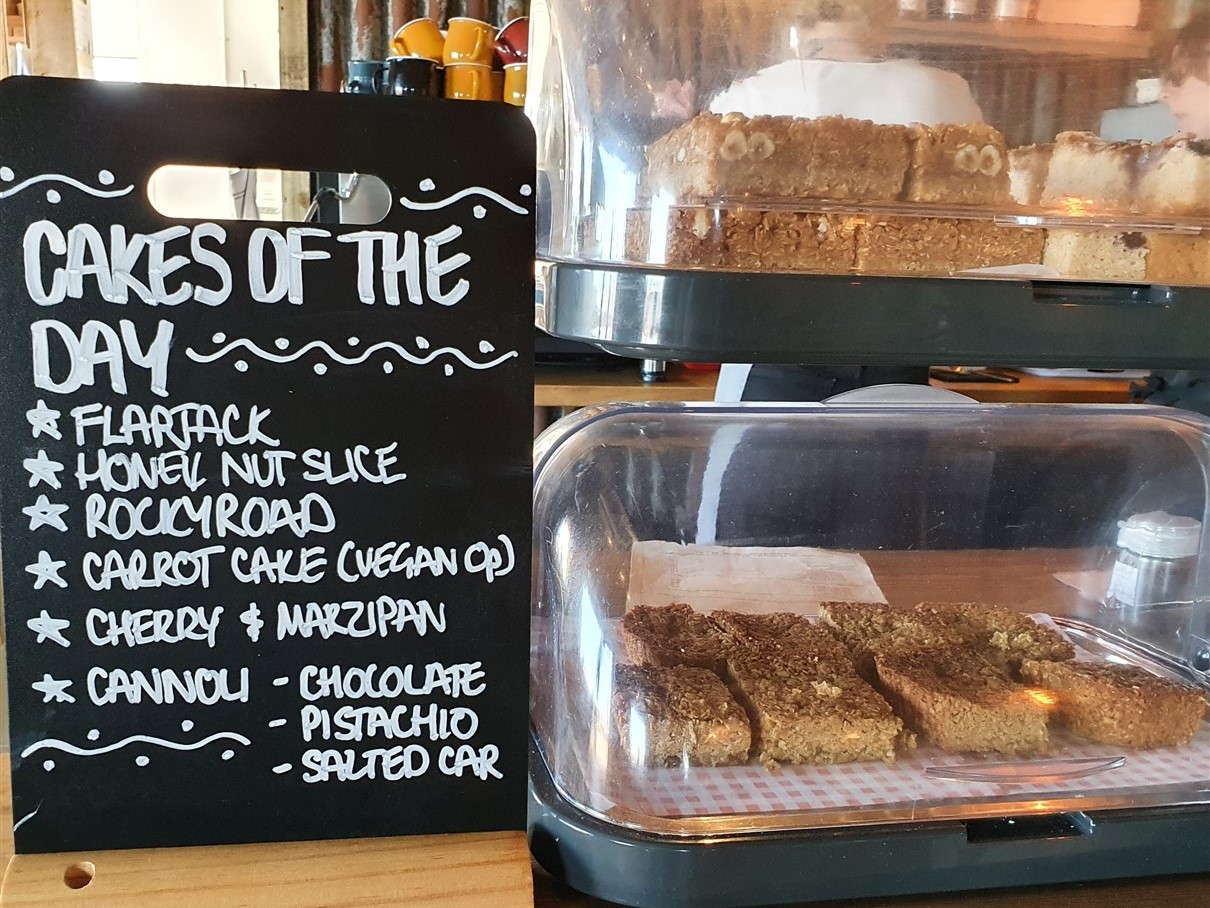 CAKES OF THE
DAY
FLAPJACK
HONEY NUT SLICE
ROCKY ROAD
CARROT CAKE (VEGAN OP)
CHERRY & MARZIPAN
CANNOLI - CHOCOLATE
- PISTACHIO
- SALTED CAR